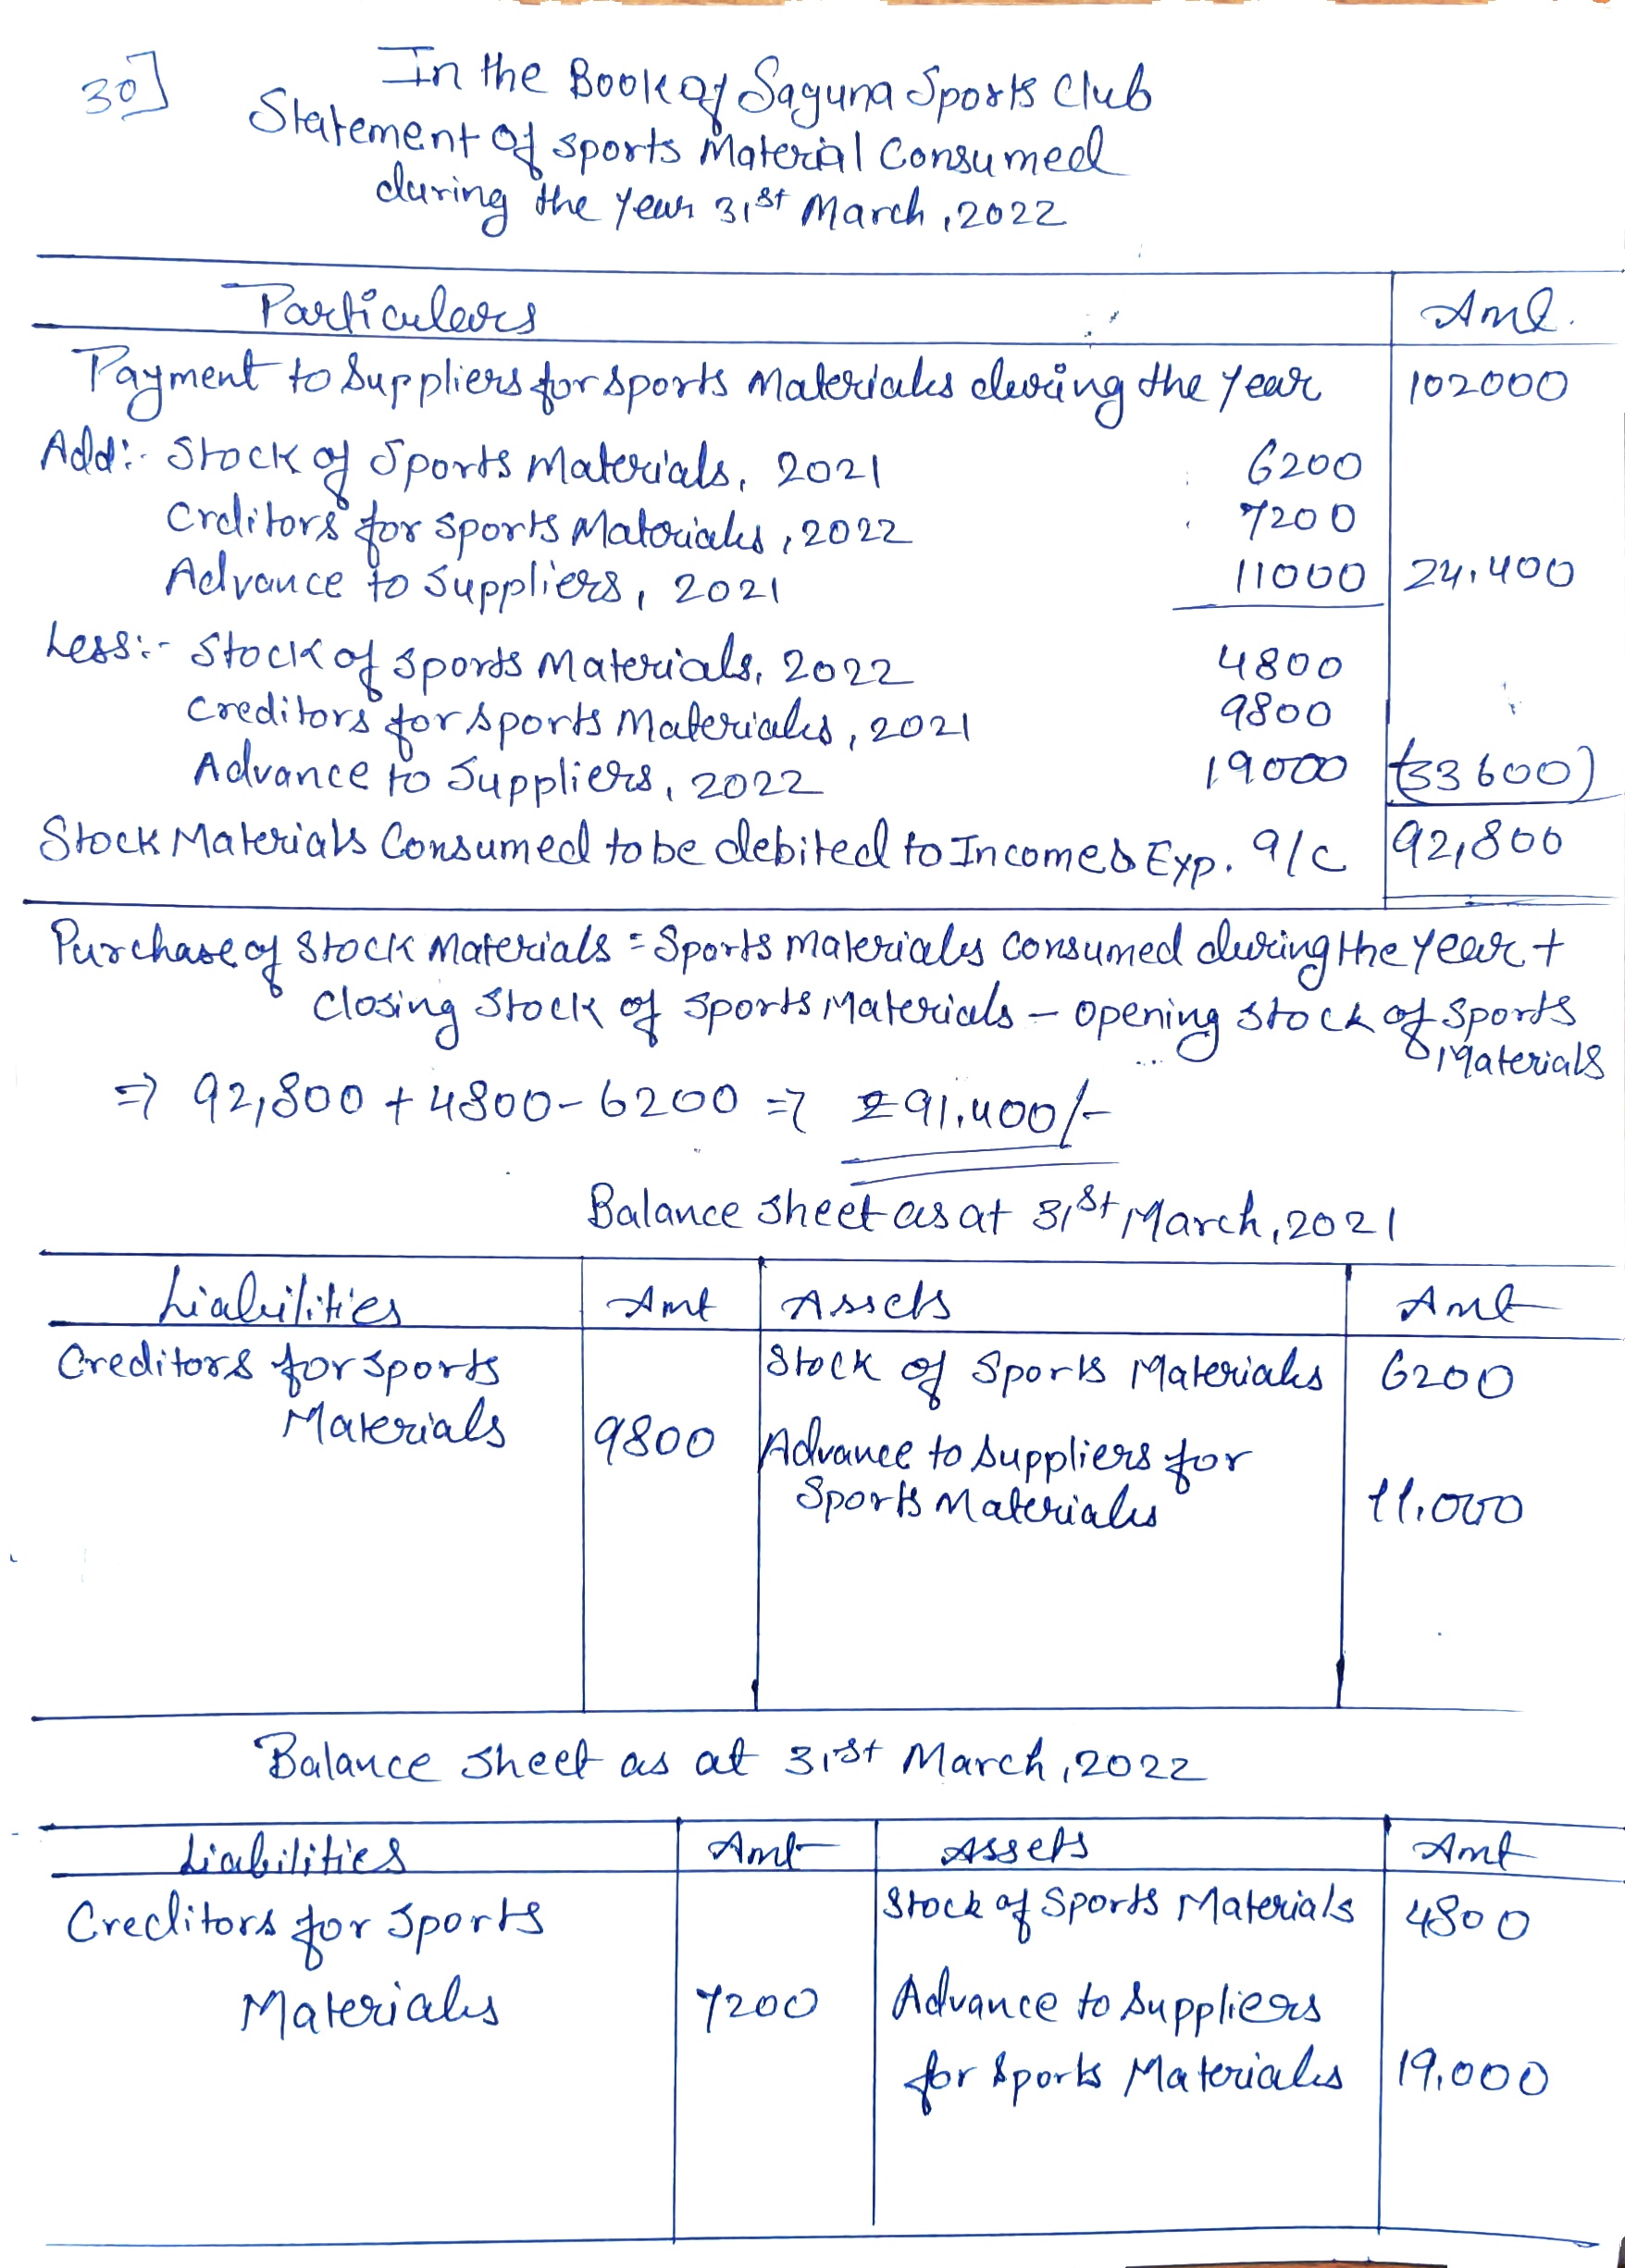 30]
In the Book of Saguna Sports Club
Statement of sports Material Consumed
during the year 31st March, 2022
Particulars Amt.
Payment to Suppliers for sports Materials during the year 102000
Add:- Stock of Sports Materials, 2021 6200
Crditors for sports Materials, 2022 7200
Advance to Suppliers, 2021 11000 24,400
Less:- Stock of sports Materials, 2022 4800
Creditors for sports Materials, 2021 9800
Advance to Suppliers, 2022 19000 (33600)
Stock Materials Consumed to be debited to Income & Exp. a/c 92,800
Purchase of Stock Materials = Sports materials consumed during the year +
Closing Stock of Sports Materials - Opening stock of Sports
Materials
⇒ 92,800 + 4800 - 6200 ⇒ ₹91,400/-
Balance Sheet as at 31st March, 2021
Liabilities Amt Assets Amt
Creditors for sports Stock of Sports Materials 6200
Materials 9800 Advance to Suppliers for
Sports Materials 11,000
Balance Sheet as at 31st March, 2022
Liabilities Amt Assets Amt
Creditors for Sports Stock of Sports Materials 4800
Materials 7200 Advance to Suppliers
for Sports Materials 19,000